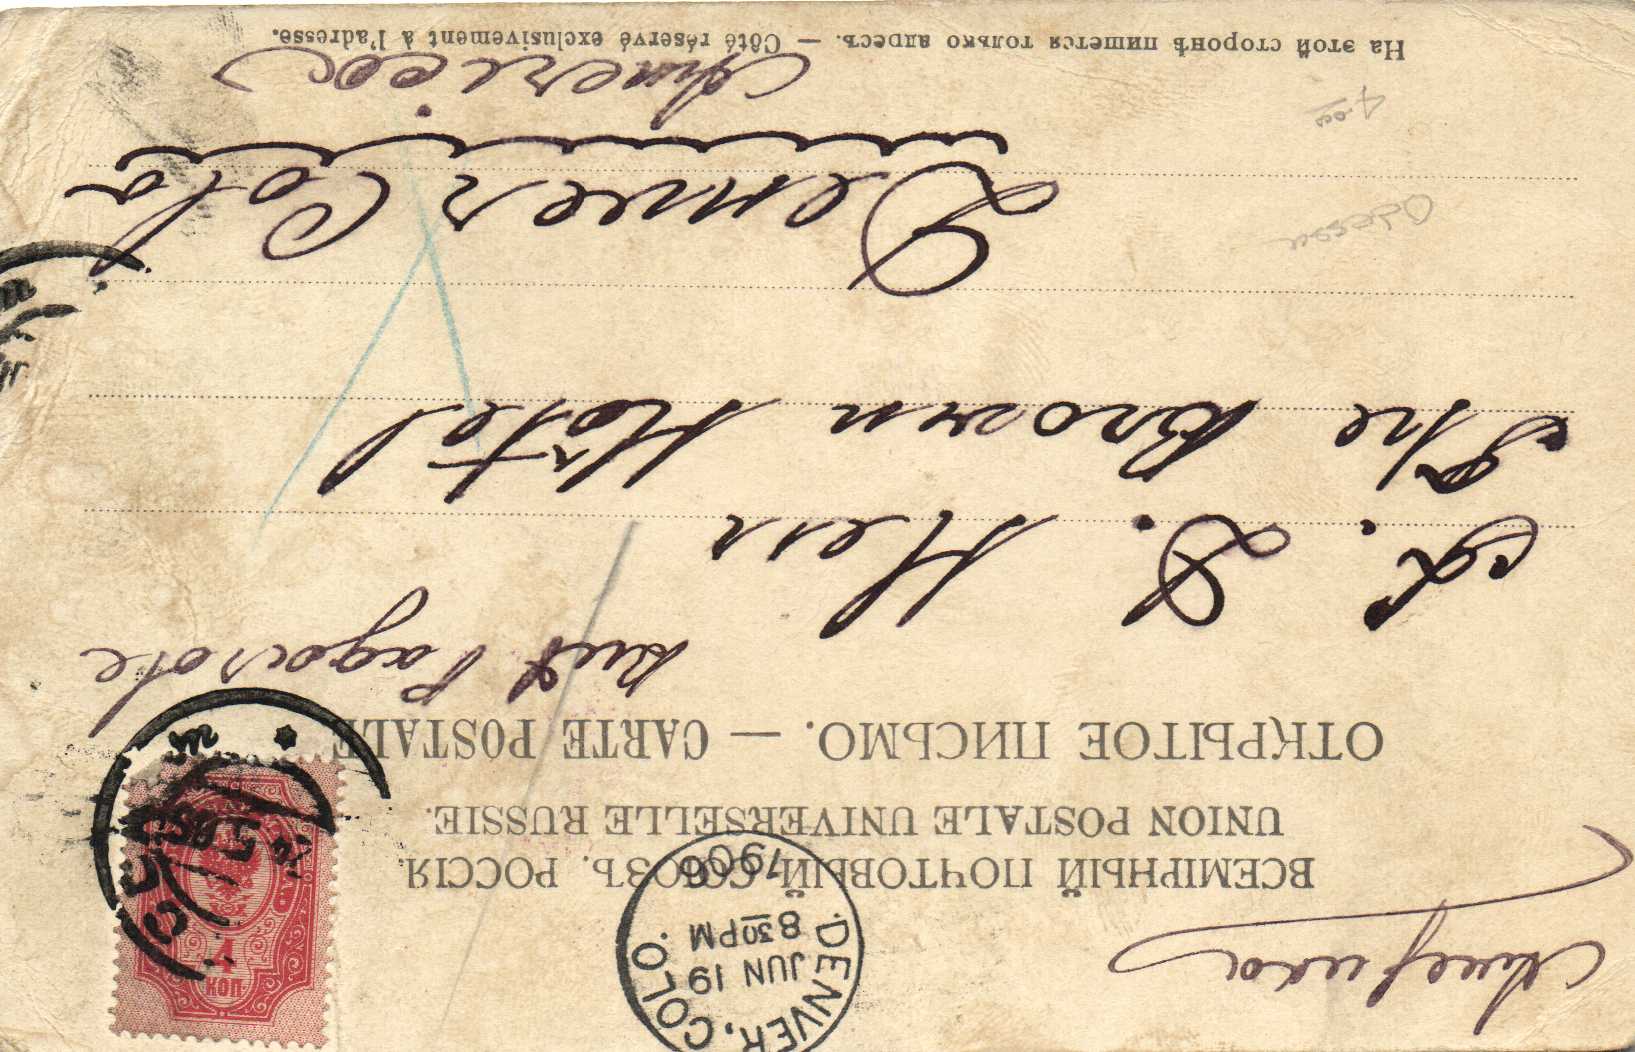 Америка
DENVER, COLO.
JUN 19
8 30 PM
1906
4
КОП.
ВСЕМІРНЫЙ ПОЧТОВЫЙ СОЮЗЪ. РОССІЯ.
UNION POSTALE UNIVERSELLE RUSSIE.
ОТКРЫТОЕ ПИСЬМО. — CARTE POSTALE
A. D.
The Brown Hotel
Odessa
Denver Colo
4.00
America
На этой сторонѣ пишется только адресъ. — Côté réservé exclusivement à l'adresse.